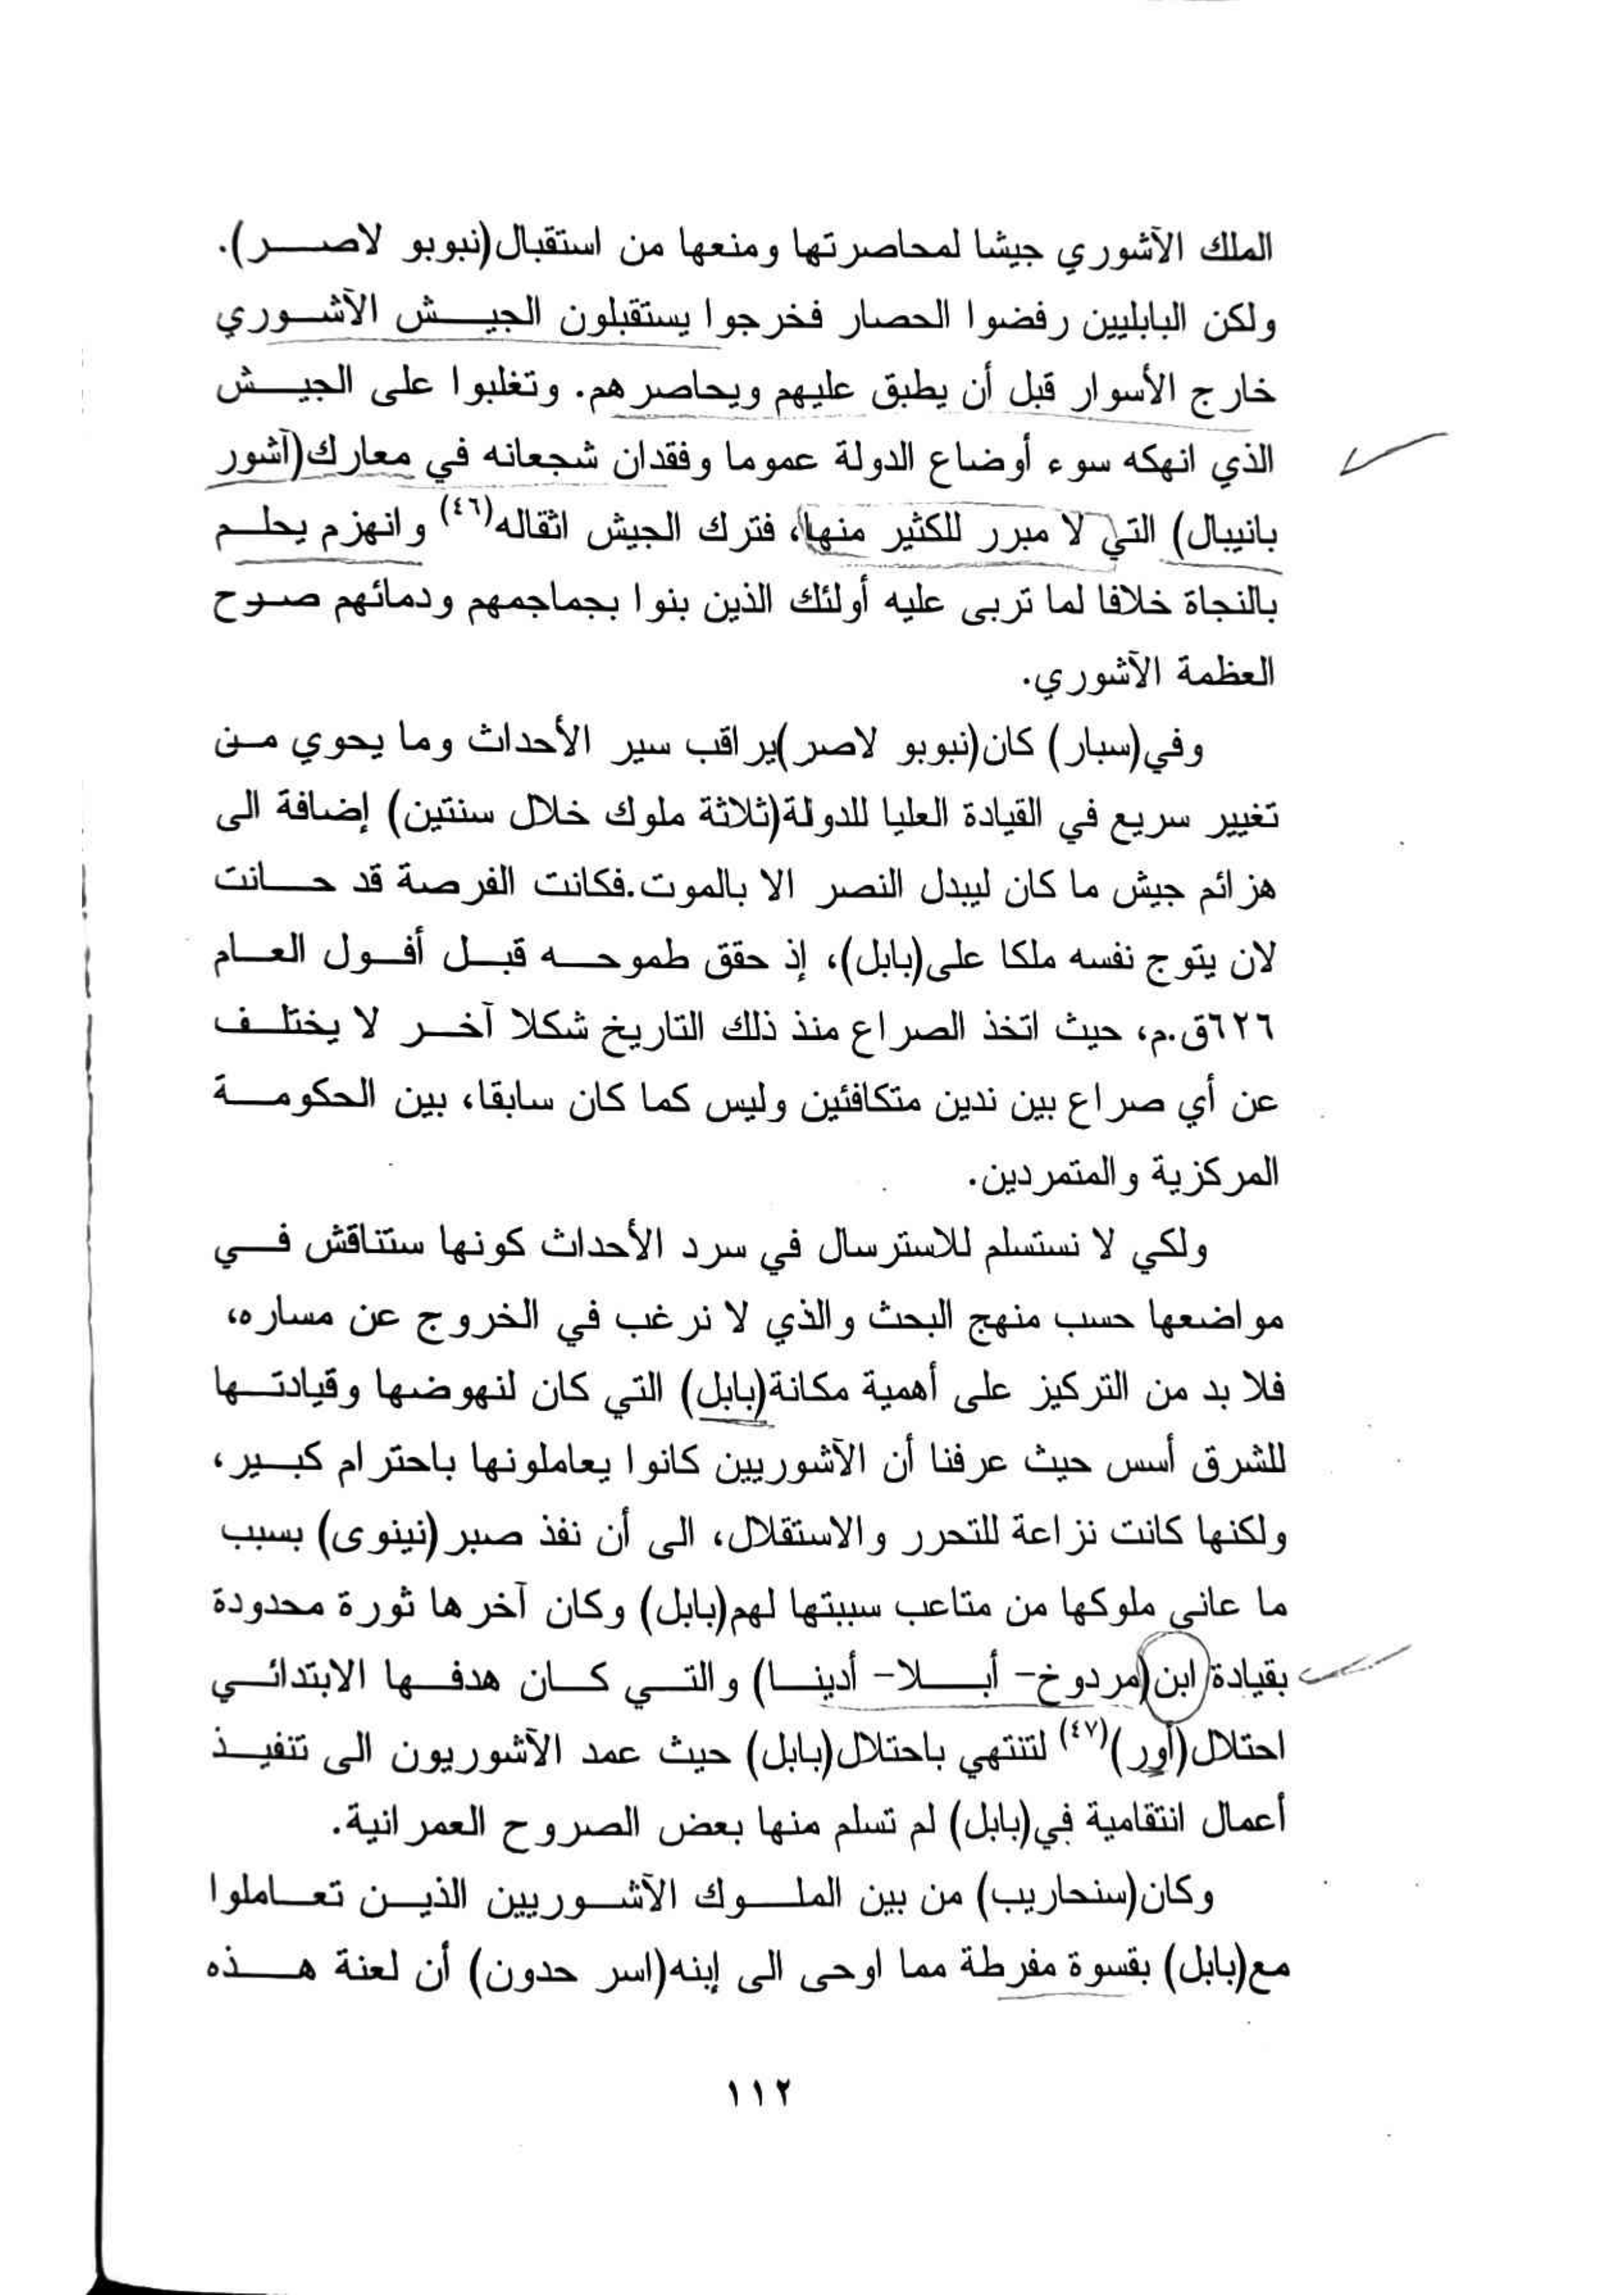 الملك الآشوري جيشا لمحاصرتها ومنعها من استقبال(نبوبو لاصر).
ولكن البابليين رفضوا الحصار فخرجوا يستقبلون الجيش الآشوري
خارج الأسوار قبل أن يطبق عليهم ويحاصرهم. وتغلبوا على الجيش
الذي انهكه سوء أوضاع الدولة عموما وفقدان شجعانه في معارك(آشور
بانيبال) التي لا مبرر للكثير منها، فترك الجيش اثقاله(٤٦) وانهزم يحلم
بالنجاة خلافا لما تربى عليه أولئك الذين بنوا بجماجمهم ودمائهم صرح
العظمة الآشوري.
وفي(سبار) كان(نبوبو لاصر)يراقب سير الأحداث وما يحوي من
تغيير سريع في القيادة العليا للدولة(ثلاثة ملوك خلال سنتين) إضافة الى
هزائم جيش ما كان ليبدل النصر الا بالموت.فكانت الفرصة قد حانت
لان يتوج نفسه ملكا على(بابل)، إذ حقق طموحه قبل أفول العام
٦٢٦ق.م، حيث اتخذ الصراع منذ ذلك التاريخ شكلا آخر لا يختلف
عن أي صراع بين ندين متكافئين وليس كما كان سابقا، بين الحكومة
المركزية والمتمردين.
ولكي لا نستسلم للاسترسال في سرد الأحداث كونها ستناقش في
مواضعها حسب منهج البحث والذي لا نرغب في الخروج عن مساره،
فلا بد من التركيز على أهمية مكانة(بابل) التي كان لنهوضها وقيادتها
للشرق أسس حيث عرفنا أن الآشوريين كانوا يعاملونها باحترام كبير،
ولكنها كانت نزاعة للتحرر والاستقلال، الى أن نفذ صبر (نينوى) بسبب
ما عانى ملوكها من متاعب سببتها لهم(بابل) وكان آخرها ثورة محدودة
بقيادة ابن(مردوخ- أبلا- أدينا) والتي كان هدفها الابتدائي
احتلال(أور)(٤٧) لتنتهي باحتلال(بابل) حيث عمد الآشوريون الى تنفيذ
أعمال انتقامية في(بابل) لم تسلم منها بعض الصروح العمرانية.
وكان(سنحاريب) من بين الملوك الآشوريين الذين تعاملوا
مع(بابل) بقسوة مفرطة مما اوحى الى إبنه(اسر حدون) أن لعنة هذه
١١٢